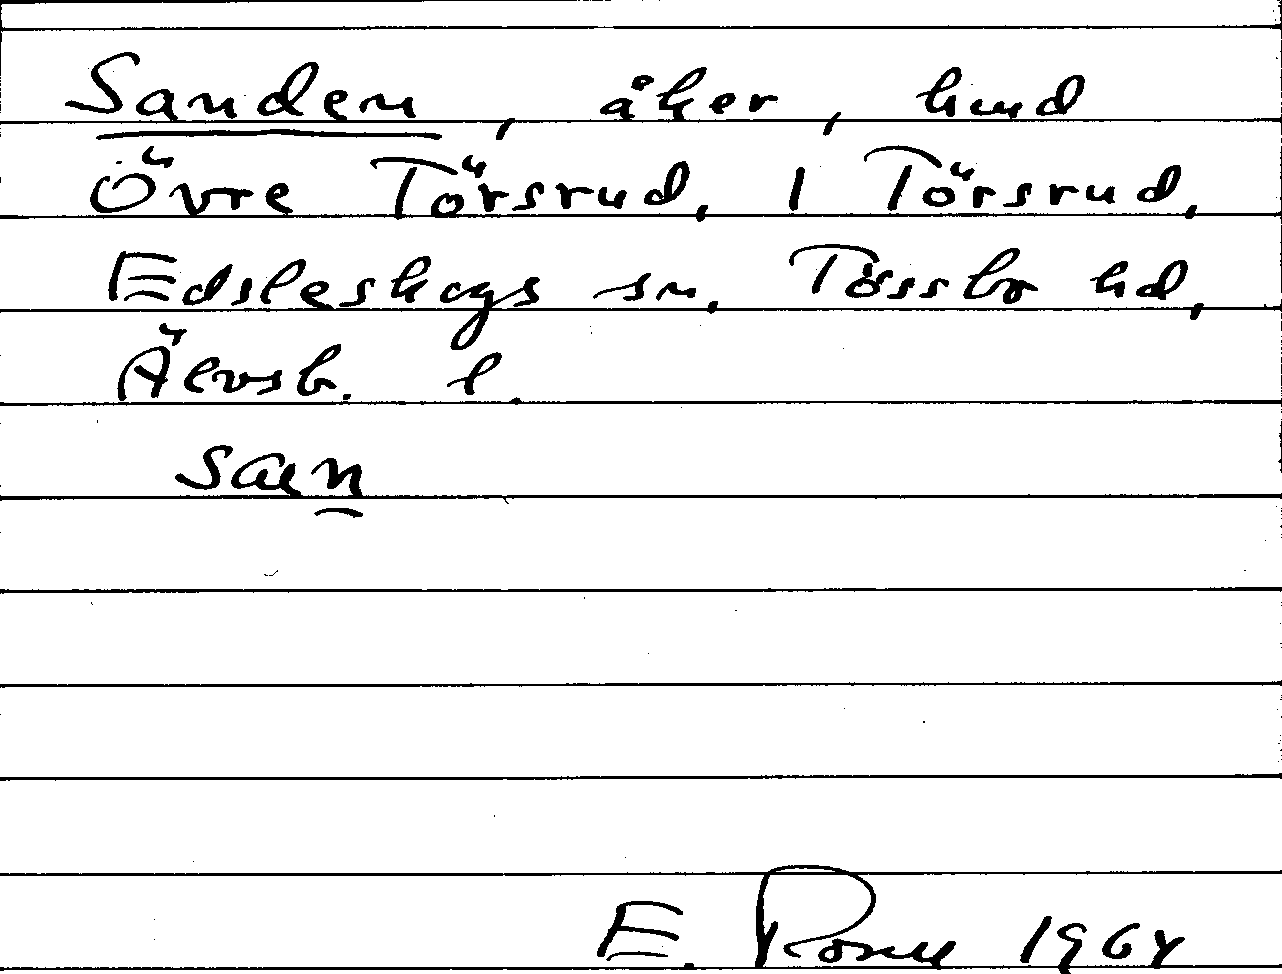 Sanden, åker, hmd
Övre Törsrud, 1 Törsrud,
Edsleskogs sn, Tössbo hd,
Älvsb. l.
san
E. 1964